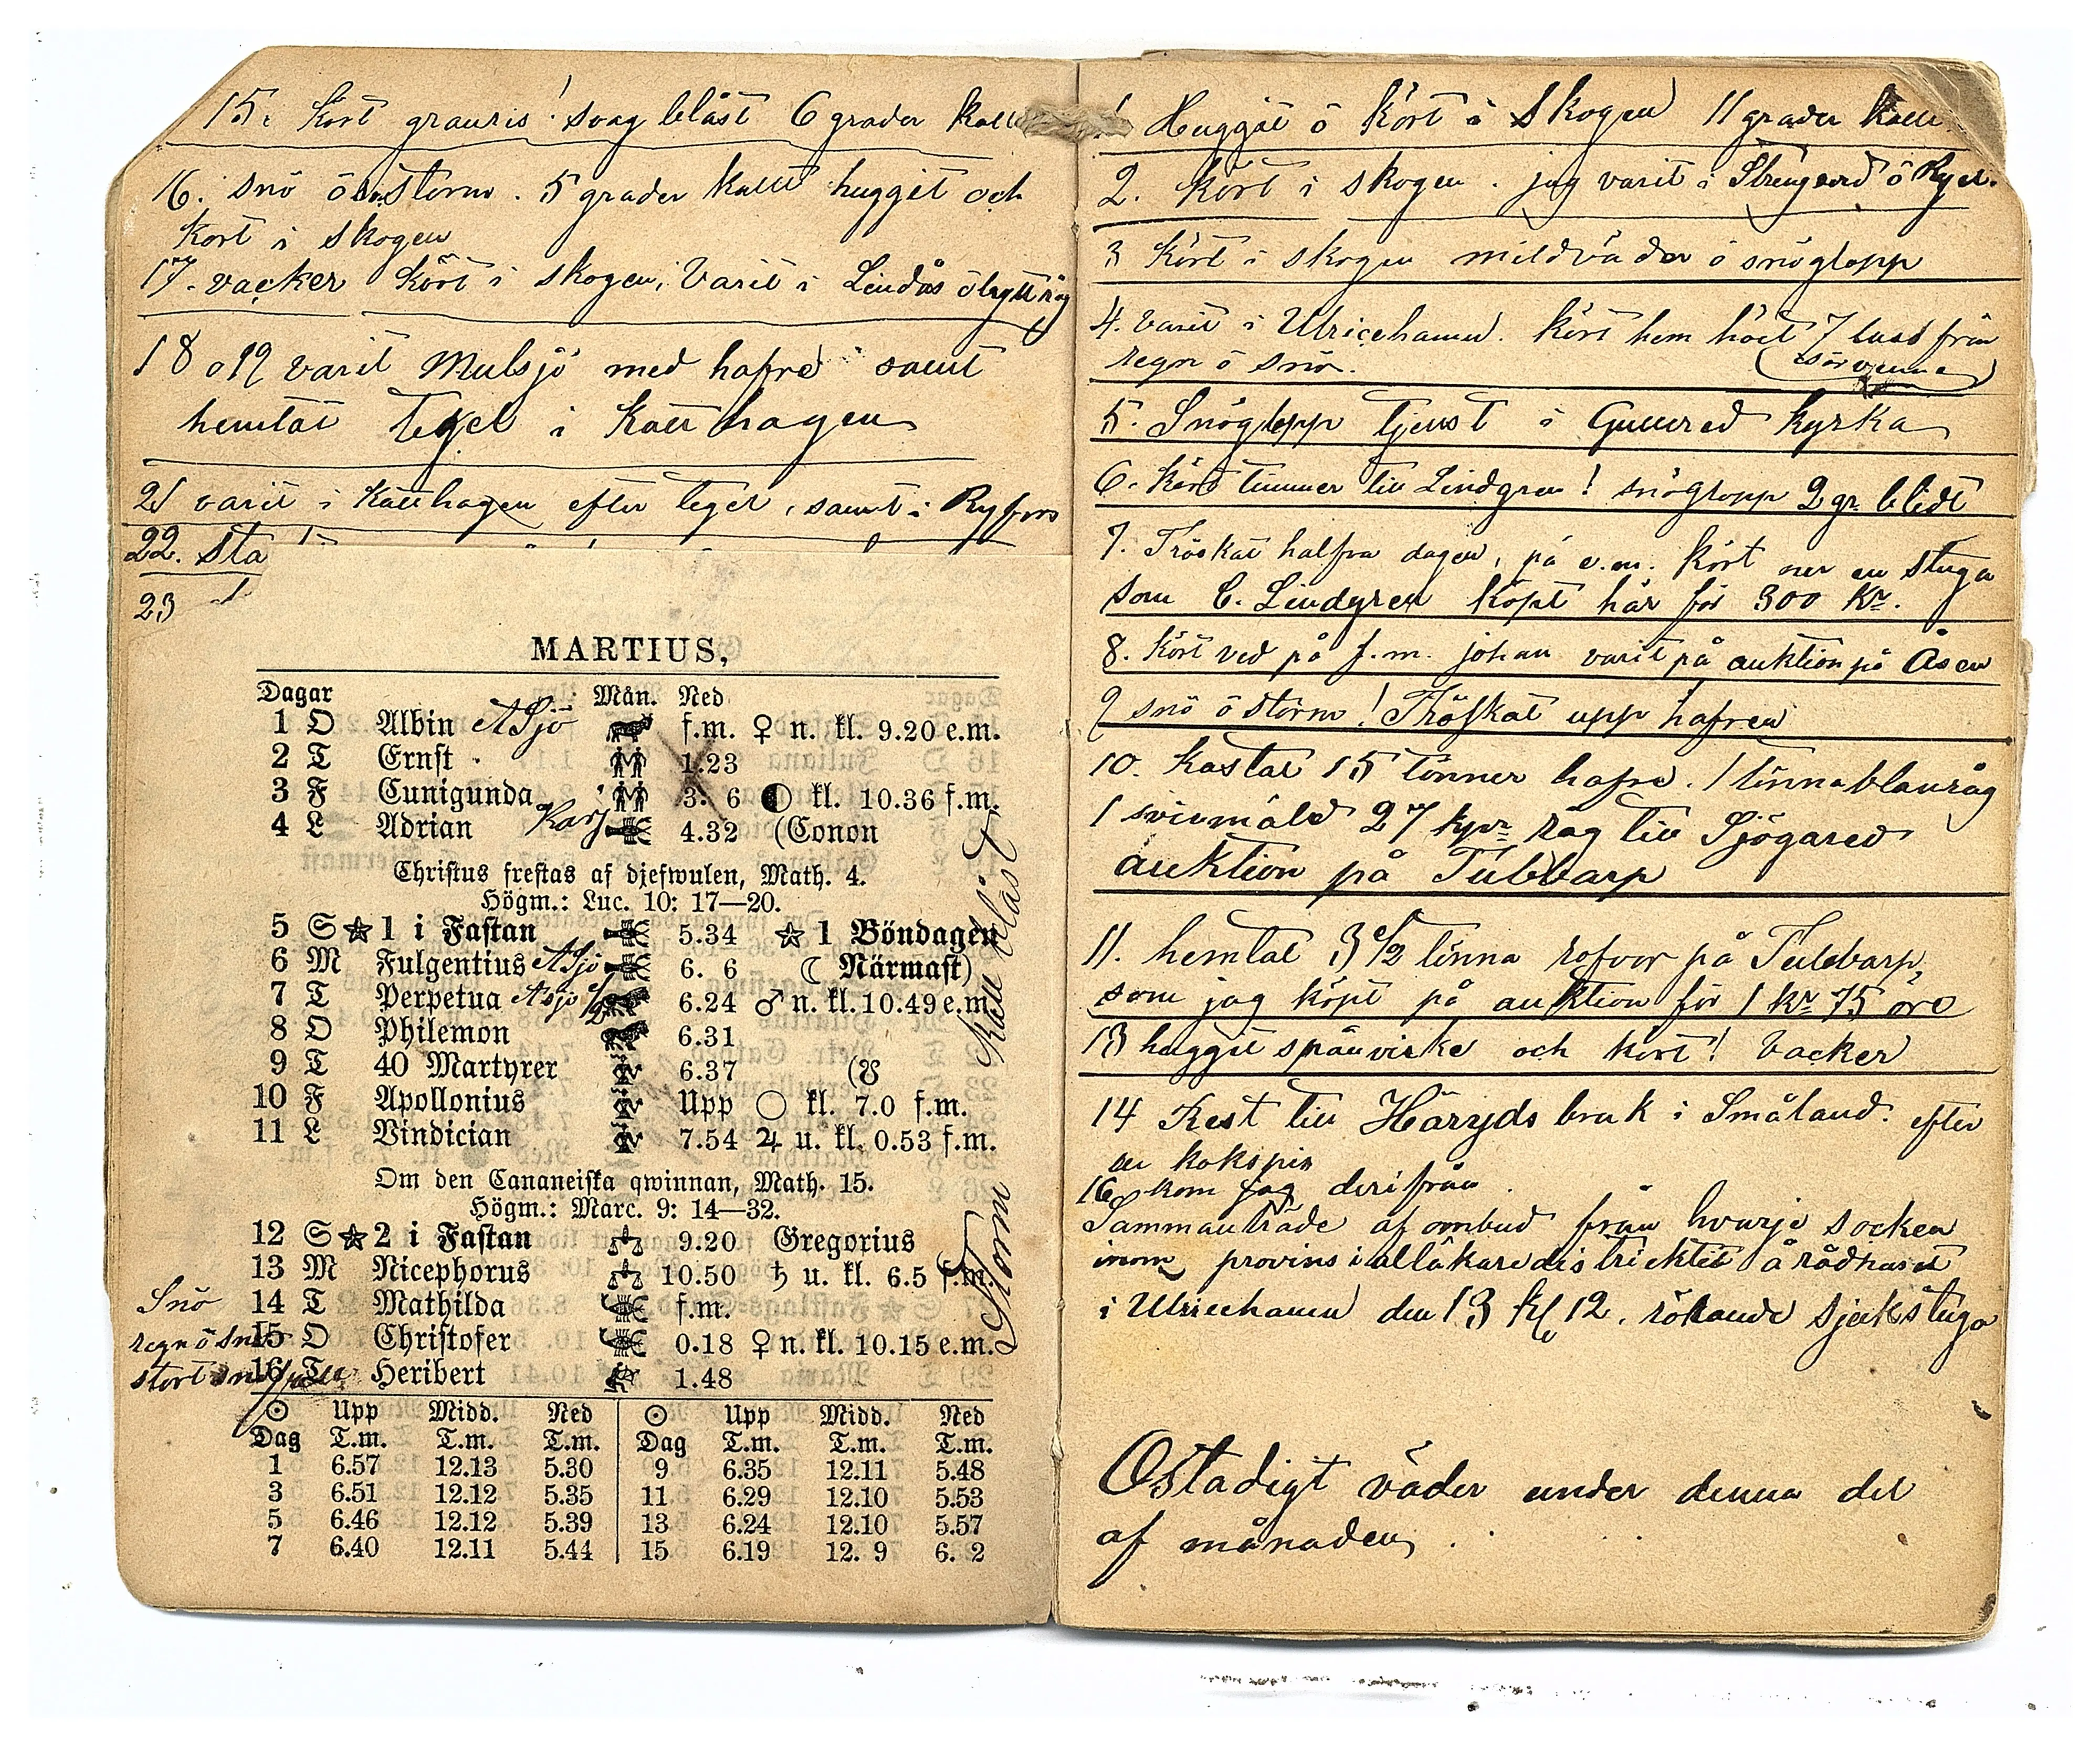 15. Kört granris! svag blåst 6 grader kallt
16. snö ö storm. 5 grader kallt huggit och
kört i skogen
17. vacker Kört i skogen, Varit i Lindås ö bytt råg
18 o 19 varit Mulsjö med hafre samt
hemtat tegel i Katthagen
21 varit i Katthagen efter tegel, samt i Ryfors
22. sta
23
MARTIUS,
Dagar Mån. Ned
1 O Albin ASjö f.m. ♀ n. kl. 9.20 e.m.
2 T Ernst 1.23
3 F Cunigunda 3. 6 kl. 10.36 f.m.
4 L Adrian Karf 4.32 (Conon
Christus frestas af djefwulen, Math. 4.
Högm.: Luc. 10: 17—20.
5 S 1 i Fastan 5.34 1 Böndagen
6 M Fulgentius ASjö 6. 6 ☾ Närmast)
7 T Perpetua Asjö 1/2 6.24 ♂ n. kl. 10.49 e.m.
8 O Philemon 6.31
9 T 40 Martyrer 6.37 (☋
10 F Apollonius Upp ○ kl. 7.0 f.m.
11 L Vindician 7.54 ♃ u. kl. 0.53 f.m.
Om den Cananeiska qwinnan, Math. 15.
Högm.: Marc. 9: 14—32.
12 S 2 i Fastan 9.20 Gregorius
13 M Nicephorus 10.50 ♄ u. kl. 6.5 f.m.
Snö 14 T Mathilda f.m.
regn ö snö 15 O Christofer 0.18 ♀ n. kl. 10.15 e.m.
stort snöfall 16 T Heribert 1.48
Storm Kall blåst
☉ Upp Midd. Ned ☉ Upp Midd. Ned
Dag T.m. T.m. T.m. Dag T.m. T.m. T.m.
1 6.57 12.13 5.30 9 6.35 12.11 5.48
3 6.51 12.12 5.35 11 6.29 12.10 5.53
5 6.46 12.12 5.39 13 6.24 12.10 5.57
7 6.40 12.11 5.44 15 6.19 12. 9 6. 2
1 Huggit ö kört i skogen 11 grader kallt
2. kört i skogen. jag varit i ö Ryd.
3 Kört i skogen mildväder ö snöglopp
4. Varit i Ulricehamn. kört hem höet 7 lass från
regn ö snö.
5. Snöglopp tjenst i Gullered kyrka
6. Kört timmer till Lindgren! snöglopp 2 gr. blidt
7. Tröskat halfva dagen, på e.m. kört ner en stuga
som C. Lindgren köpt här för 300 Kr.
8. Kört ved på f.m. johan varit på auktion på Åsen
9 snö ö storm! Tröskat upp hafren
10. Kastat 15 tönner hafre. 1 tönna blanråg
1 svinmåld 27 kpr råg till Sjögared
auktion på Tubbarp
11. hemtat 3 1/2 tönna rofvor på Tubbarp,
som jag köpt på auktion för 1 kr 75 öre
13 huggit spånvirke och kört! Vacker
14 Rest till Häryds bruk i Småland. efter
en kokspis
16 kom jag derifrån.
Sammanträde af ombud från hvarje socken
inom provinsialläkaredistricktet å rådhuset
i Ulricehamn den 13 Kl 12. rörande sjukstuga
Ostadigt väder under denna del
af månaden.